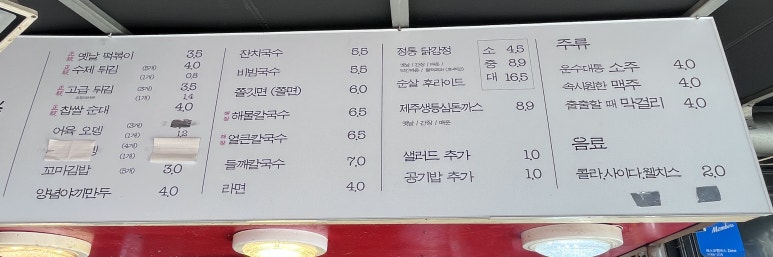 正統 옛날 떡볶이 3,5
正統 수제 튀김 (5개) 4,0
(1개) 0,8
正統 고급 튀김 (3개) 3,5
(1개) 1,4
正統 찹쌀 순대 4,0
어육 오뎅 (3개)
(1개) 1,2
(4개)
(1개)
꼬마김밥 (5개) 3,0
양념야끼만두 4,0
잔치국수 5,5
비빔국수 5,5
쫄깃면 (쫄면) 6,0
해물칼국수 6,5
얼큰칼국수 6,5
들깨칼국수 7,0
라면 4,0
정통 닭강정
옛날 / 간장 / 매운
순살 후라이드
소 4,5
중 8,9
대 16,5
제주생등심돈까스 8,9
옛날 / 간장 / 매운
샐러드 추가 1,0
공기밥 추가 1,0
주류
운수대통 소주 4,0
속시원한 맥주 4,0
출출할 때 막걸리 4,0
음료
콜라,사이다,웰치스 2,0
Members